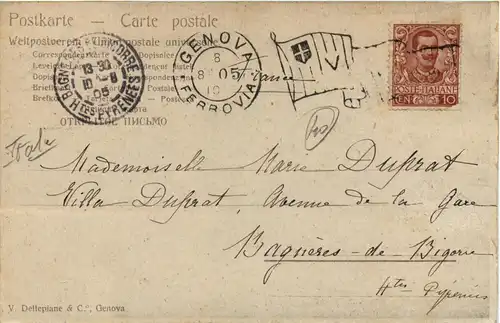 Postkarte — Carte postale
Weltpostverein — Union postale universelle
ОТКРЫТОЕ ПИСЬМО
BAGNÈRES BIGORRE
13 30
10 8
05
Htes PYRÉNÉES
GENOVA
8
8 05
FERROVIA
V
POSTE ITALIANE
CENT. 10
France
Italie
Mademoiselle Marie Duprat
Villa Duprat, Avenue de la Gare
Bagnères-de-Bigorre
Htes Pyrénées
V. Dettepiane & C.º, Genova